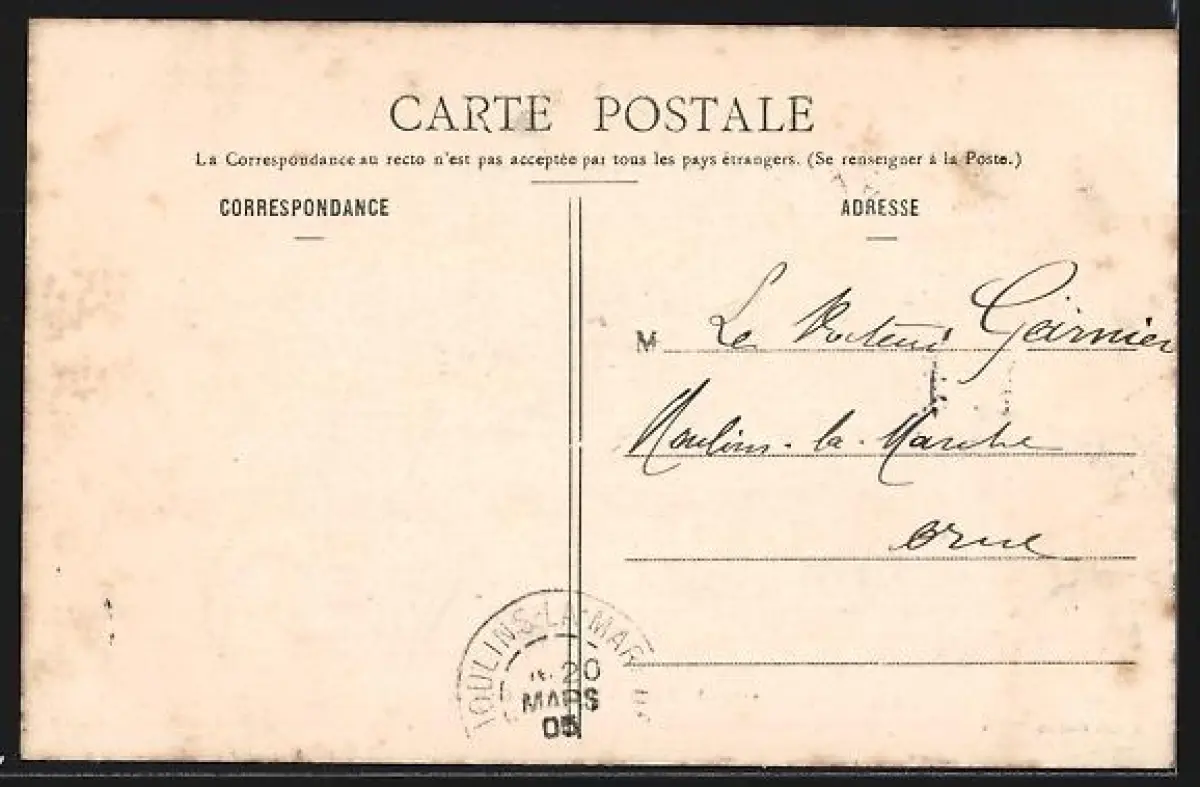 CARTE POSTALE
La Correspondance au recto n'est pas acceptée par tous les pays étrangers. (Se renseigner à la Poste.)
CORRESPONDANCE
ADRESSE
M Le Docteur Garnier
Moulins-la-Marche
Orne
MOULINS-LA-MAR
20
MARS
05